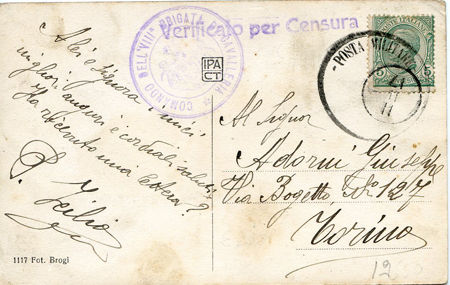 Verificato per Censura
COMANDO DELL'VIIIª BRIGATA CAVALLERIA
IPA
CT
POSTA MILITARE
5 5
11
Al e Signora i miei
migliori auguri e cordiali saluti.
Ha ricevuto una lettera?
Al Signor
Adorni Giuseppe
Via Bogetto, Nº 127
Torino
1117 Fot. Brogi
12